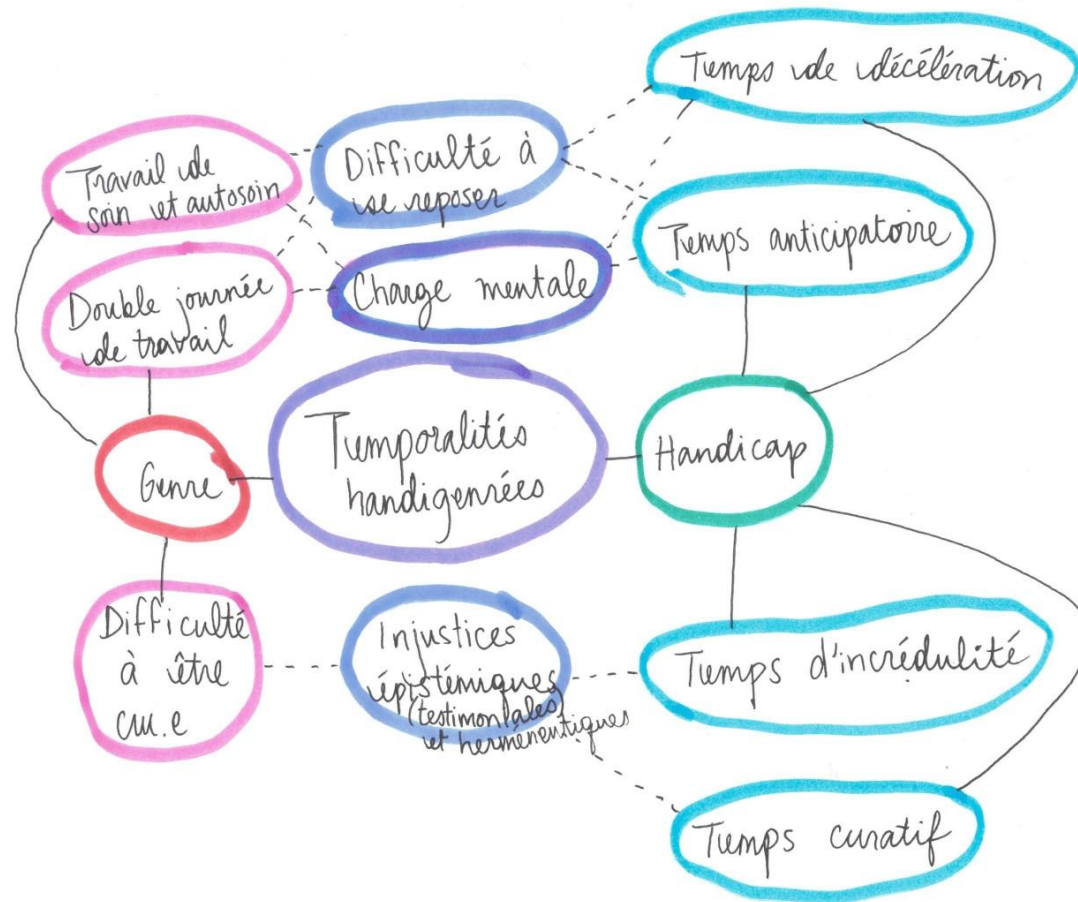 Temps de décélération
Travail de
soin et autosoin
Difficulté à
se reposer
Temps anticipatoire
Double journée
de travail
Charge mentale
Temporalités
handigenrées
Genre
Handicap
Difficulté
à être
cru.e
Injustices
épistémiques
(testimoniales)
et herméneutiques
Temps d'incrédulité
Temps curatif